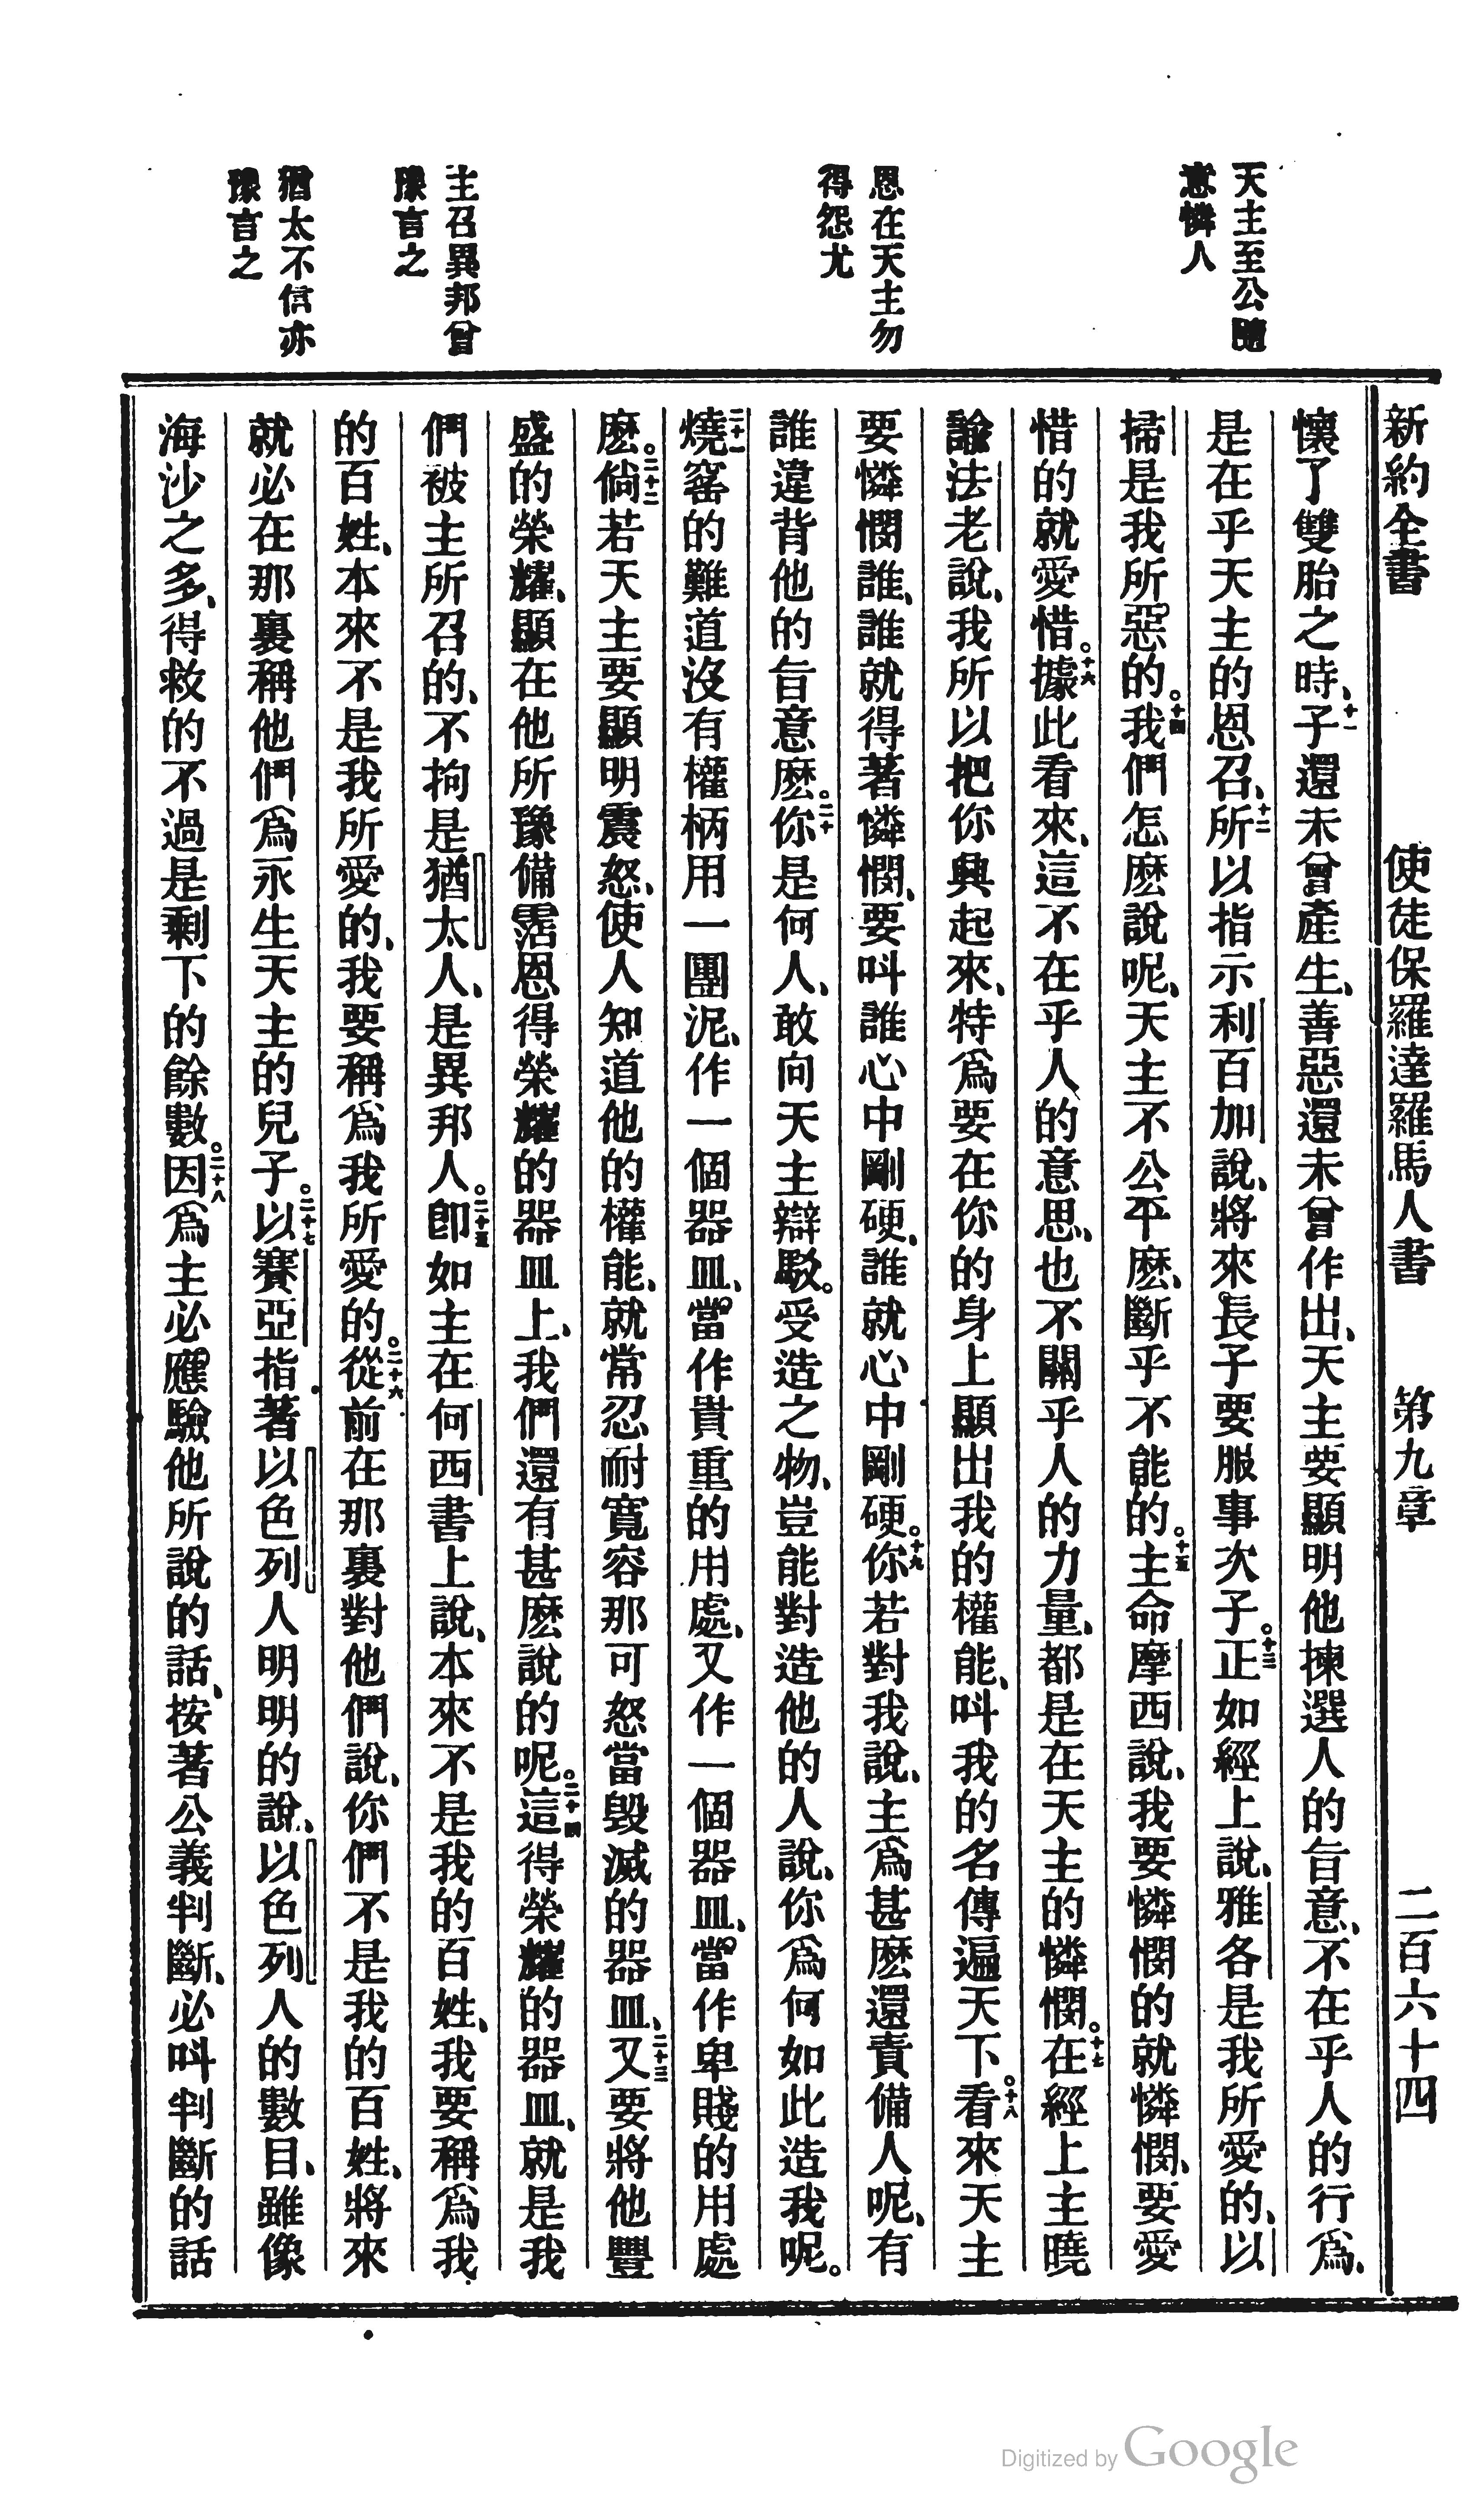 新約全書 使徒保羅達羅馬人書 第九章 二百六十四
天主至公隨
意憐人
恩在天主勿
得怨尤
主召異邦曾
豫言之
猶太不信亦
豫言之
懷了雙胎之時、十一子還未曾產生、善惡還未曾作出、天主要顯明他揀選人的旨意、不在乎人的行爲、
是在乎天主的恩召、十二所以指示利百加說、將來長子要服事次子。十三正如經上說、雅各是我所愛的、以
掃是我所惡的。十四我們怎麽說呢、天主不公平麽、斷乎不能的。十五主命摩西說、我要憐憫的就憐憫、要愛
惜的就愛惜。十六據此看來、這不在乎人的意思、也不關乎人的力量、都是在天主的憐憫。十七在經上主曉
諭法老說、我所以把你興起來、特爲要在你的身上顯出我的權能、叫我的名傳遍天下。十八看來天主
要憐憫誰、誰就得著憐憫、要叫誰心中剛硬、誰就心中剛硬。十九你若對我說、主爲甚麽還責備人呢、有
誰違背他的旨意麽。二十你是何人、敢向天主辯駁。受造之物、豈能對造他的人說、你爲何如此造我呢。
二十一燒窰的難道沒有權柄用一團泥、作一個器皿、當作貴重的用處、又作一個器皿、當作卑賤的用處
麽。二十二倘若天主要顯明震怒、使人知道他的權能、就常忍耐寬容那可怒當毀滅的器皿、二十三又要將他豐
盛的榮耀、顯在他所豫備霑恩得榮耀的器皿上、我們還有甚麽說的呢。二十四這得榮耀的器皿、就是我
們被主所召的、不拘是猶太人、是異邦人。二十五卽如主在何西書上說、本來不是我的百姓、我要稱爲我
的百姓、本來不是我所愛的、我要稱爲我所愛的。二十六從前在那裏對他們說、你們不是我的百姓、將來
就必在那裏稱他們爲永生天主的兒子。二十七以賽亞指著以色列人明明的說、以色列人的數目、雖像
海沙之多、得救的不過是剩下的餘數。二十八因爲主必應驗他所說的話、按著公義判斷、必叫判斷的話
Digitized by Google